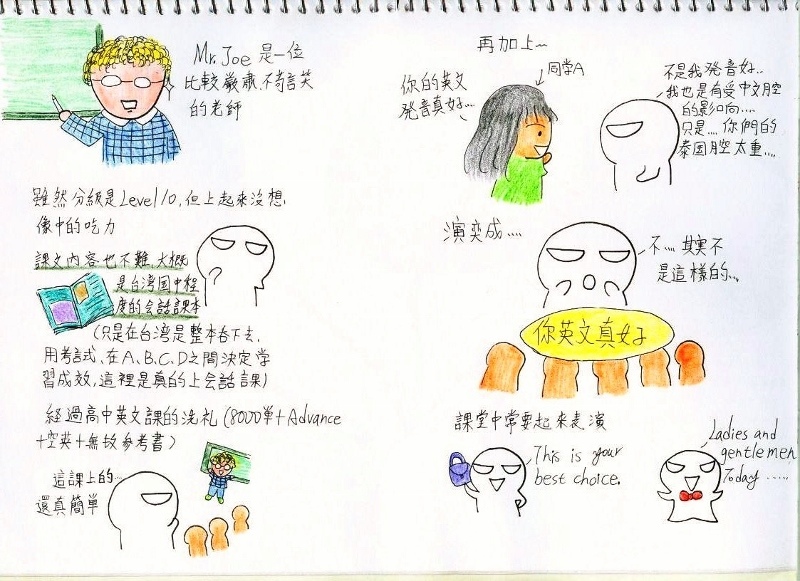 Mr. Joe 是一位
比較嚴肅、不苟言笑
的老師
雖然分級是Level 10,但上起來沒想
像中的吃力
課文內容也不難,大概
是台湾國中程
度的会話課本
(只是在台湾是整本吞下去,
用考試,在A、B、C、D之間決定学
習成效,這裡是真的上会話課)
經過高中英文課的洗礼(8000單+Advance
+空英+無敌参考書)
這課上的…
還真簡單
再加上~
同学A
你的英文
発音真好…
不是我発音好..
我也是有受中文腔
的影响….
只是…. 你們的
泰國腔太重….
演变成….
不…. 其実不
是這樣的…
你英文真好
課堂中常要起來表演
This is your
best choice.
Ladies and
gentlemen
Today .....